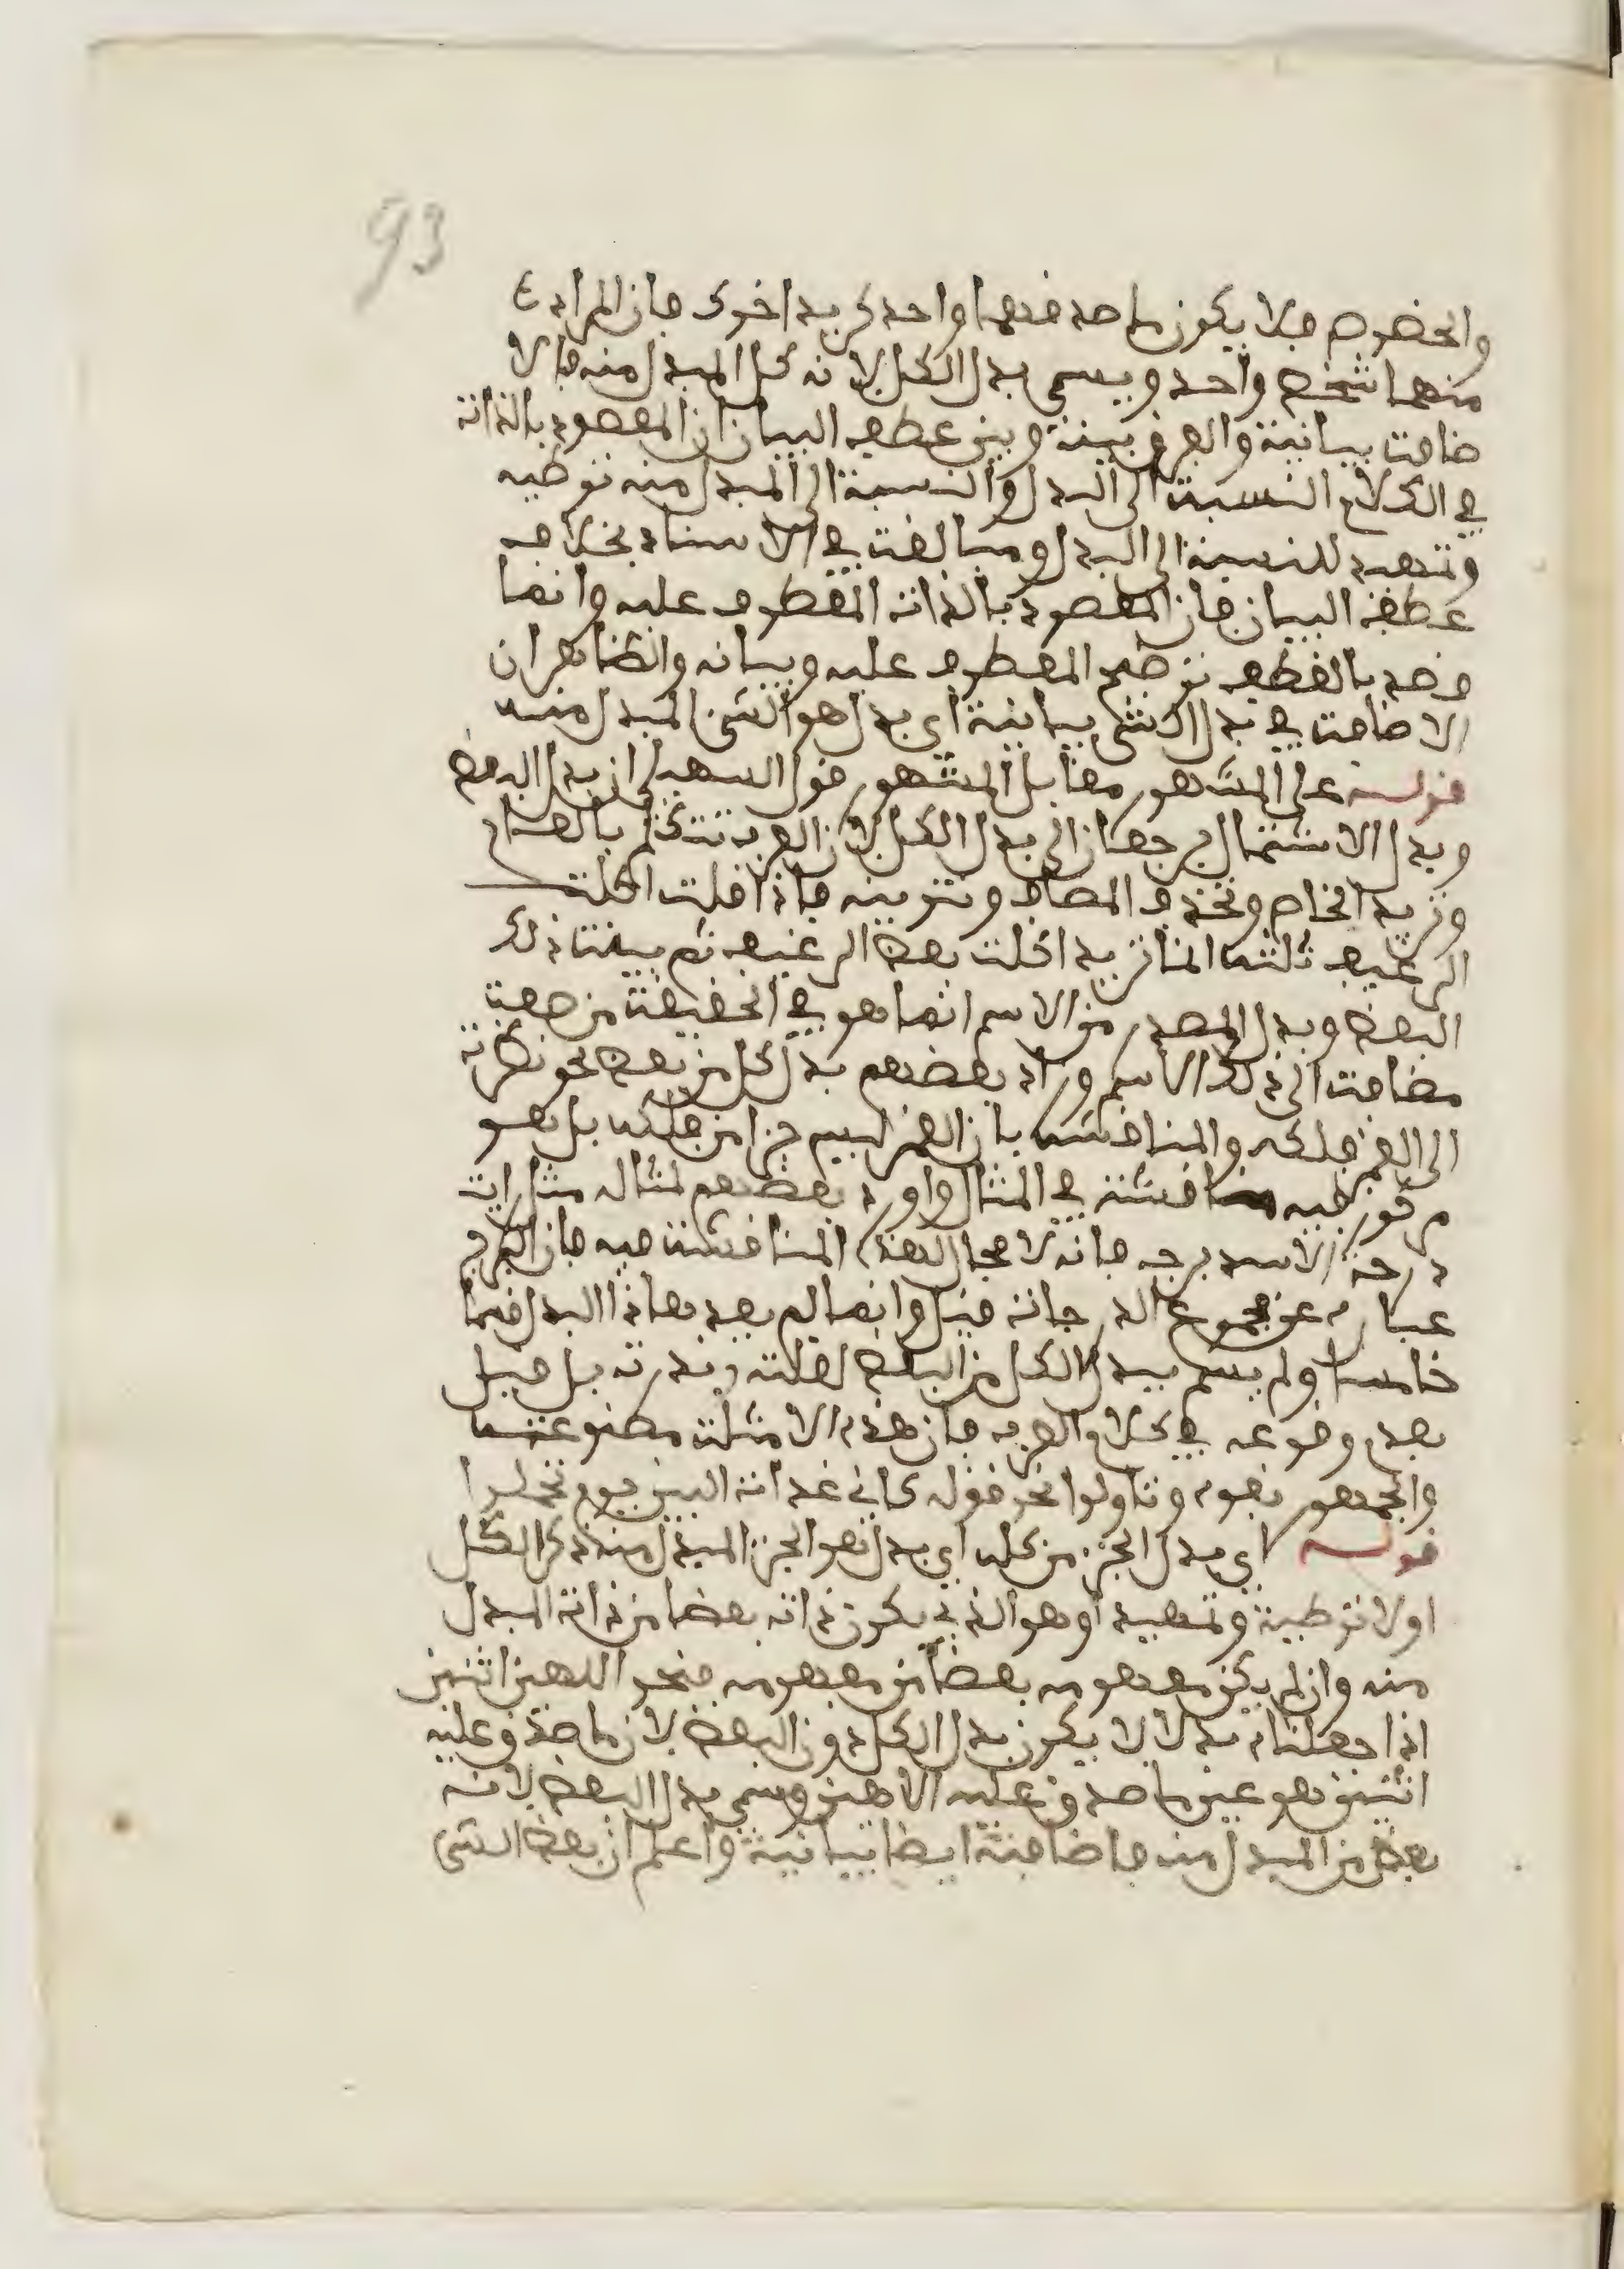 93
والخصوص فلا يكون ماصدقهما واحد كزيد اخوك فان المراد
منهما شخص واحد ويسمى بدل الكل لانه كل المبدل منه فالا
ضافت بيانية والفرق بينه وبين عطف البيان ان المقصود بالذات
في الكلام النسبة الى البدل والنسبة الى المبدل منه توطية
وتمهيد للنسبة الى البدل ومبالغت في الاسناد بخلاف
عطف البيان فان المقصود بالذات المعطوف عليه وانما
قصد بالعطف توضيح المعطوف عليه وبيانه والظاهر ان
الاضافت في بدل الشي بيانية اي بدل هو الشي المبدل منه
قوله على المشهور مقابل المشهور قول السهيلي ان بدل البعض
وبدل الاشتمال يرجعان الى بدل الكل لان العرب تتكلم بالعام
وتريد الخاص وتحذف المضاف وتنويه فاذا قلت اكلت
الرغيف ثلثه انما تريد اكلت بعض الرغيف ثم بينت ذلك
البعض وبدل المصدر من الاسم انما هو في الحقيقة من صفت
مضافت الى ذلك الاسم وزاد بعضهم بدل كل من بعض نحو نظرت
الى القمر فلكه والمناقشه بان القمر ليس جزا من فلكه بل هو
مركوز فيه مناقشة في المثال واورد بعضهم لمثاله مثل رايت
درجة الاسد برجه فانه لا مجال لهذه المناقشت فيه فان البرج
عبارة عن مجموع الدرجات قيل وانما لم يعد هاذا البدل قسما
خامسا ولم يسم ببدل الكل من البعض لقلته وندرته بل قيل
بعدم وقوعه في كلام العرب فان هذه الامثلت مصنوعت
والجمهور نفوه وتاولوا نحو قوله كاني غدات البين يوم تحملوا
قوله اي بدل الجزء من كله اي بدل هو الجزء المبدل منه ذكر الكل
اولا توطية وتمهيد او هو الذي يكون ذاته بعضا من ذات المبدل
منه وان لم يكن مفهومه بعضا من مفهومه فنحو الاهين اثنين
اذا جعلناه بدلا لا يكون بدل الكل دون البعض لان ماصدق عليه
اثنين هو عين ماصدق عليه الاهين وسمي بدل البعض لانه
بعض من المبدل منه فاضافته ايضا بيانية واعلم ان بعض الشي